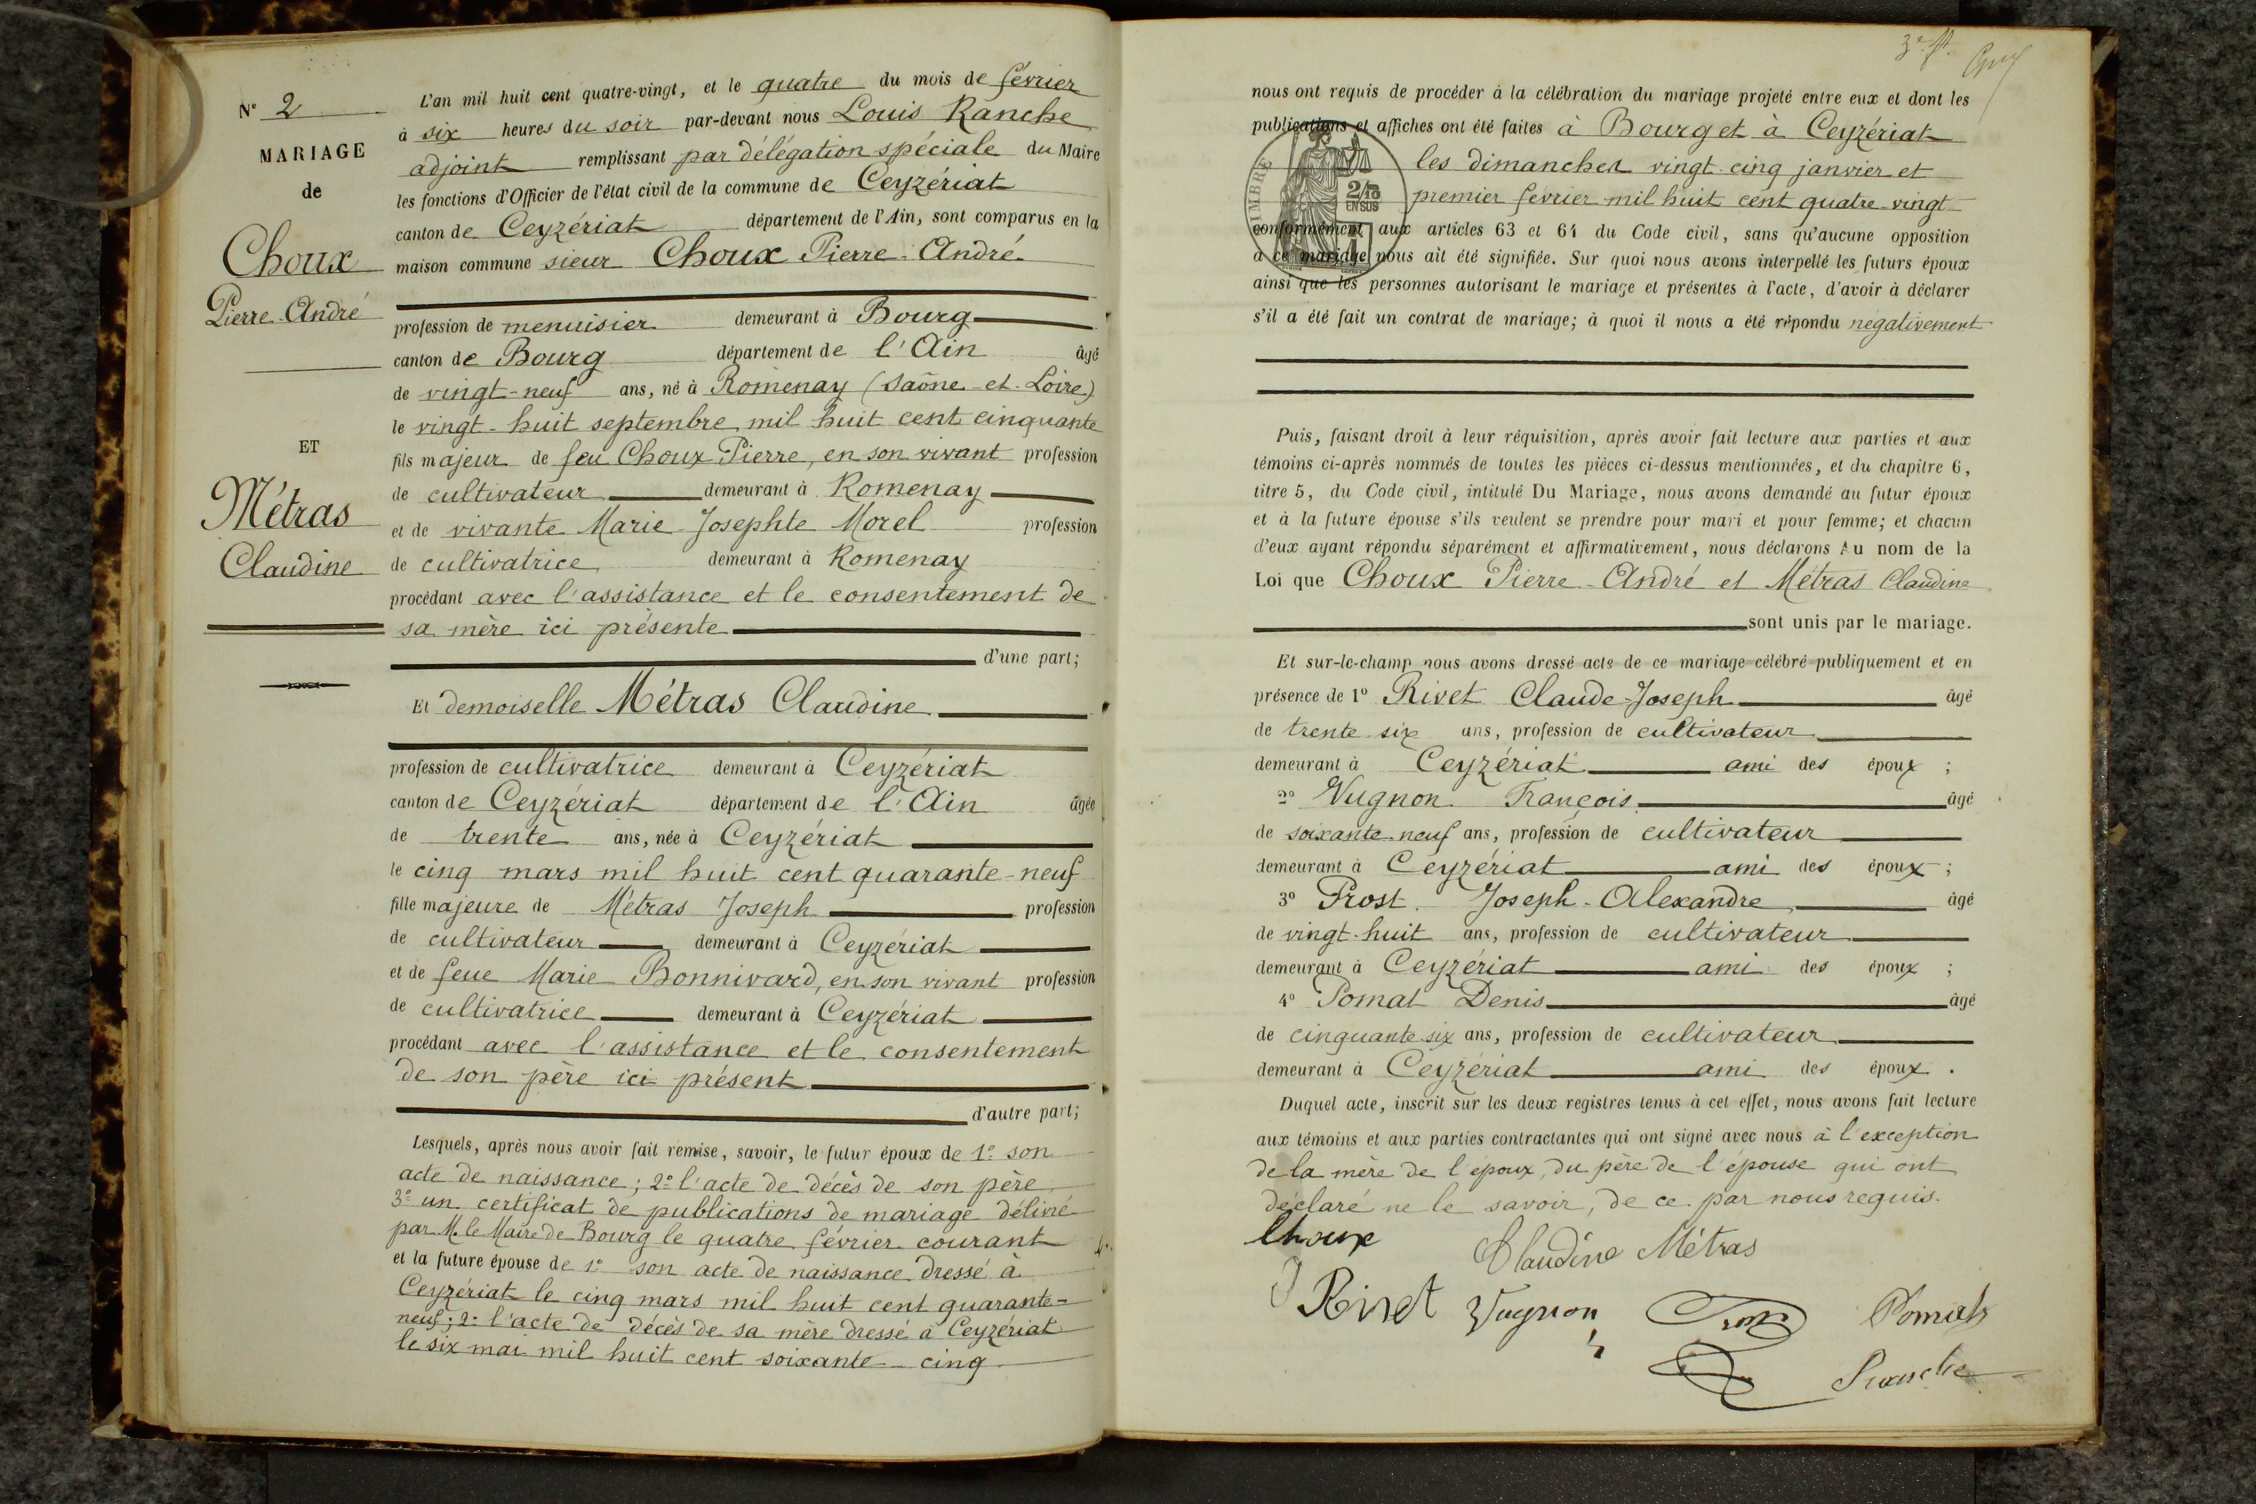 N° 2
MARIAGE
de
Choux
Pierre-André
ET
Métras
Claudine
L'an mil huit cent quatre-vingt, et le quatre du mois de février
à six heures du soir par-devant nous Louis Ranche
adjoint remplissant par délégation spéciale du Maire
les fonctions d'Officier de l'état civil de la commune de Ceyzériat
canton de Ceyzériat département de l'Ain, sont comparus en la
maison commune sieur Choux Pierre-André
profession de menuisier demeurant à Bourg
canton de Bourg département de l'Ain âgé
de vingt-neuf ans, né à Romenay (Saône-et-Loire)
le vingt-huit septembre mil huit cent cinquante
fils majeur de feu Choux Pierre, en son vivant profession
de cultivateur demeurant à Romenay
et de vivante Marie-Josephte Morel profession
de cultivatrice demeurant à Romenay
procédant avec l'assistance et le consentement de
sa mère ici présente
d'une part;
Et demoiselle Métras Claudine
profession de cultivatrice demeurant à Ceyzériat
canton de Ceyzériat département de l'Ain âgée
de trente ans, née à Ceyzériat
le cinq mars mil huit cent quarante-neuf
fille majeure de Métras Joseph profession
de cultivateur demeurant à Ceyzériat
et de feue Marie Bonnivard, en son vivant profession
de cultivatrice demeurant à Ceyzériat
procédant avec l'assistance et le consentement
de son père ici présent
d'autre part;
Lesquels, après nous avoir fait remise, savoir, le futur époux de 1° son
acte de naissance; 2° l'acte de décès de son père
3° un certificat de publications de mariage délivré
par M. le Maire de Bourg le quatre février courant
et la future épouse de 1° son acte de naissance dressé à
Ceyzériat le cinq mars mil huit cent quarante-
neuf; 2° l'acte de décès de sa mère dressé à Ceyzériat
le six mai mil huit cent soixante-cinq
3e f.
nous ont requis de procéder à la célébration du mariage projeté entre eux et dont les
publications et affiches ont été faites à Bourg et à Ceyzériat
les dimanches vingt-cinq janvier et
premier février mil huit cent quatre-vingt
TIMBRE
2/10
EN SUS
conformément aux articles 63 et 64 du Code civil, sans qu'aucune opposition
à ce mariage nous ait été signifiée. Sur quoi nous avons interpellé les futurs époux
ainsi que les personnes autorisant le mariage et présentes à l'acte, d'avoir à déclarer
s'il a été fait un contrat de mariage; à quoi il nous a été répondu négativement
Puis, faisant droit à leur réquisition, après avoir fait lecture aux parties et aux
témoins ci-après nommés de toutes les pièces ci-dessus mentionnées, et du chapitre 6,
titre 5, du Code civil, intitulé Du Mariage, nous avons demandé au futur époux
et à la future épouse s'ils veulent se prendre pour mari et pour femme; et chacun
d'eux ayant répondu séparément et affirmativement, nous déclarons Au nom de la
Loi que Choux Pierre-André et Métras Claudine
sont unis par le mariage.
Et sur-le-champ nous avons dressé acte de ce mariage célébré publiquement et en
présence de 1° Rivet Claude-Joseph âgé
de trente six ans, profession de cultivateur
demeurant à Ceyzériat ami des époux;
2° Vugnon François âgé
de soixante-neuf ans, profession de cultivateur
demeurant à Ceyzériat ami des époux;
3° Prost Joseph-Alexandre âgé
de vingt-huit ans, profession de cultivateur
demeurant à Ceyzériat ami des époux;
4° Pomat Denis âgé
de cinquante six ans, profession de cultivateur
demeurant à Ceyzériat ami des époux.
Duquel acte, inscrit sur les deux registres tenus à cet effet, nous avons fait lecture
aux témoins et aux parties contractantes qui ont signé avec nous à l'exception
de la mère de l'époux, du père de l'épouse qui ont
déclaré ne le savoir, de ce par nous requis.
Choux Claudine Métras
J Rivet Vugnon Prost Pomat
Ranche